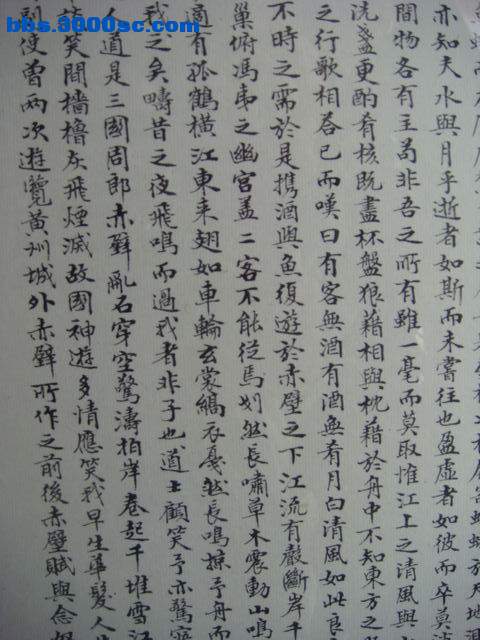 bbs.3000sc.com
蜉蝣於天地
亦知夫水與月乎逝者如斯而未嘗往也盈虛者如彼而卒莫消
間物各有主苟非吾之所有雖一毫而莫取惟江上之清風與
洗盞更酌肴核既盡杯盤狼藉相與枕藉於舟中不知東方之
之行歌相答已而嘆曰有客無酒有酒無肴月白清風如此良
不時之需於是携酒與魚復遊於赤壁之下江流有聲斷岸千
巢俯馮夷之幽宮蓋二客不能從焉划然長嘯草木震動山鳴
適有孤鶴橫江東來翅如車輪玄裳縞衣戛然長鳴掠予舟而
我之矣疇昔之夜飛鳴而過我者非子也道士顧笑予亦驚寤
人道是三國周郎赤壁亂石穿空驚濤拍岸卷起千堆雪江
談笑間檣櫓灰飛煙滅故國神遊多情應笑我早生華髮人生
便曾兩次遊覽黃州城外赤壁所作之前後赤壁賦與念奴